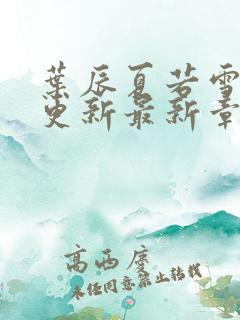 葉辰夏若雪
更新最新章
高西庆
未经同意禁止转载